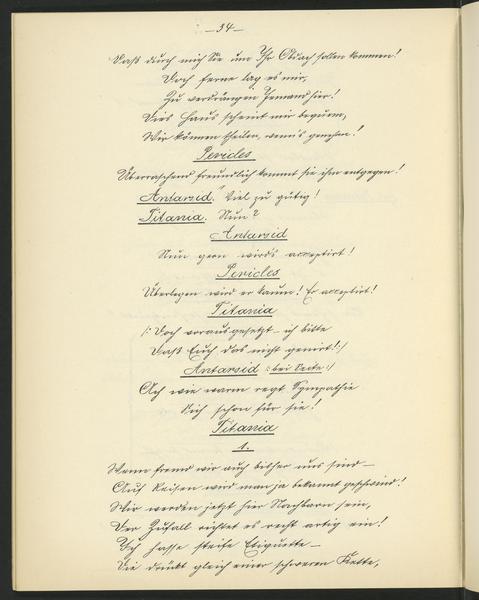 — 34 —
Daß durch mich Sie um Ihr Obdach sollen kommen!
Doch ferne lag es mir,
Zu verdrängen Jemand hier!
Dies Haus scheint mir bequem,
Wir können theilen, wenn's genehm!
Pericles
Überraschend freundlich kommt sie ihm entgegen!
Antarsid. Viel zu gütig!
Titania. Nun?
Antarsid
Nun gern wird's acceptirt!
Pericles
Überlegen wird er kaum! Er acceptirt!
Titania
/: Doch vorausgesetzt – ich bitte
Daß Euch das nicht genirt! :/
Antarsid /: bei Seite :/
Ach wie warm regt Sympathie
Sich schon für sie!
Titania
1.
Wenn fremd wir auch bisher uns sind –
Auf Reisen wird man ja bekannt geschwind!
Wir werden jetzt hier Nachbarn sein,
Der Zufall richtet es recht artig ein!
Ich hasse steife Etiquette –
Die drückt gleich einer schweren Kette,